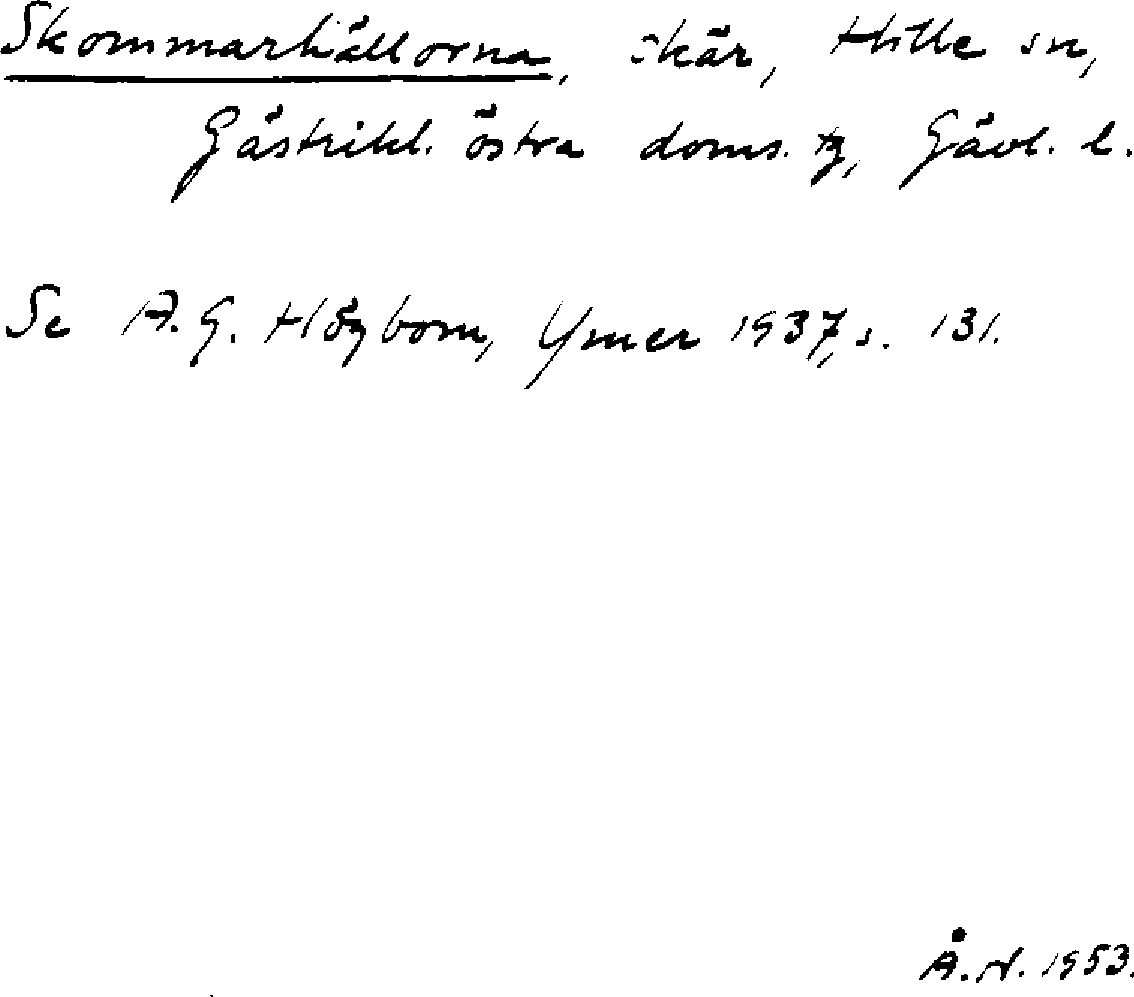 Skommarhällorna, skär, Hille sn,
Gästrikl. östra doms. tg, Gävl. l.
Se A. G. Högbom, Ymer 1937, s. 131.
Å. N. 1953.